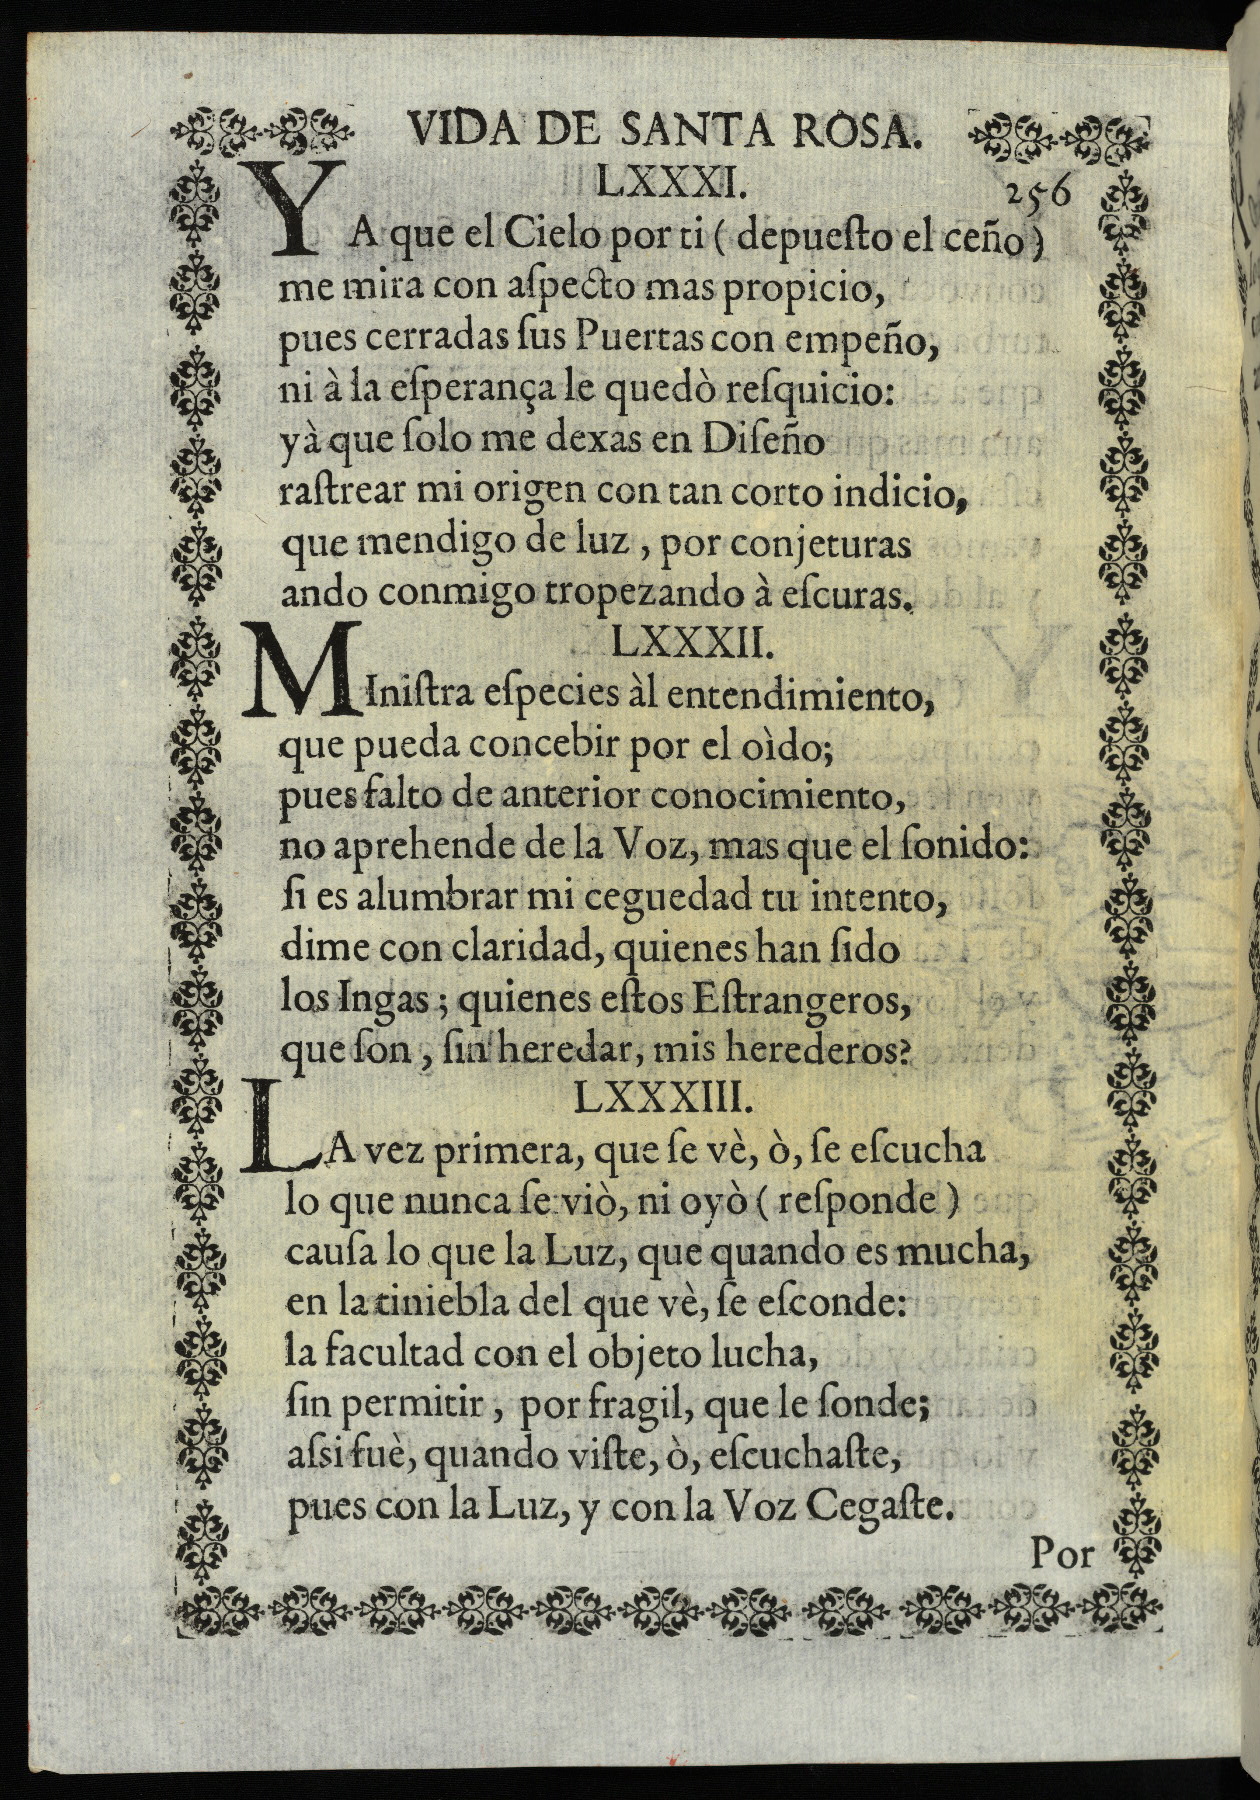 VIDA DE SANTA ROSA.
LXXXI.
256
YA que el Cielo por ti ( depueſto el ceño )
me mira con aſpecto mas propicio,
pues cerradas ſus Puertas con empeño,
ni à la eſperança le quedò reſquicio:
yà que ſolo me dexas en Diſeño
raſtrear mi origen con tan corto indicio,
que mendigo de luz , por conjeturas
ando conmigo tropezando à eſcuras.
LXXXII.
MIniſtra eſpecies àl entendimiento,
que pueda concebir por el oìdo;
pues falto de anterior conocimiento,
no aprehende de la Voz, mas que el ſonido:
ſi es alumbrar mi ceguedad tu intento,
dime con claridad, quienes han ſido
los Ingas ; quienes eſtos Eſtrangeros,
que ſon , ſin heredar, mis herederos?
LXXXIII.
LA vez primera, que ſe vè, ò, ſe eſcucha
lo que nunca ſe viò, ni oyò ( reſponde )
cauſa lo que la Luz, que quando es mucha,
en la tiniebla del que vè, ſe eſconde:
la facultad con el objeto lucha,
ſin permitir , por fragil, que le ſonde;
aſsi fuè, quando viſte, ò, eſcuchaſte,
pues con la Luz, y con la Voz Cegaſte.
Por